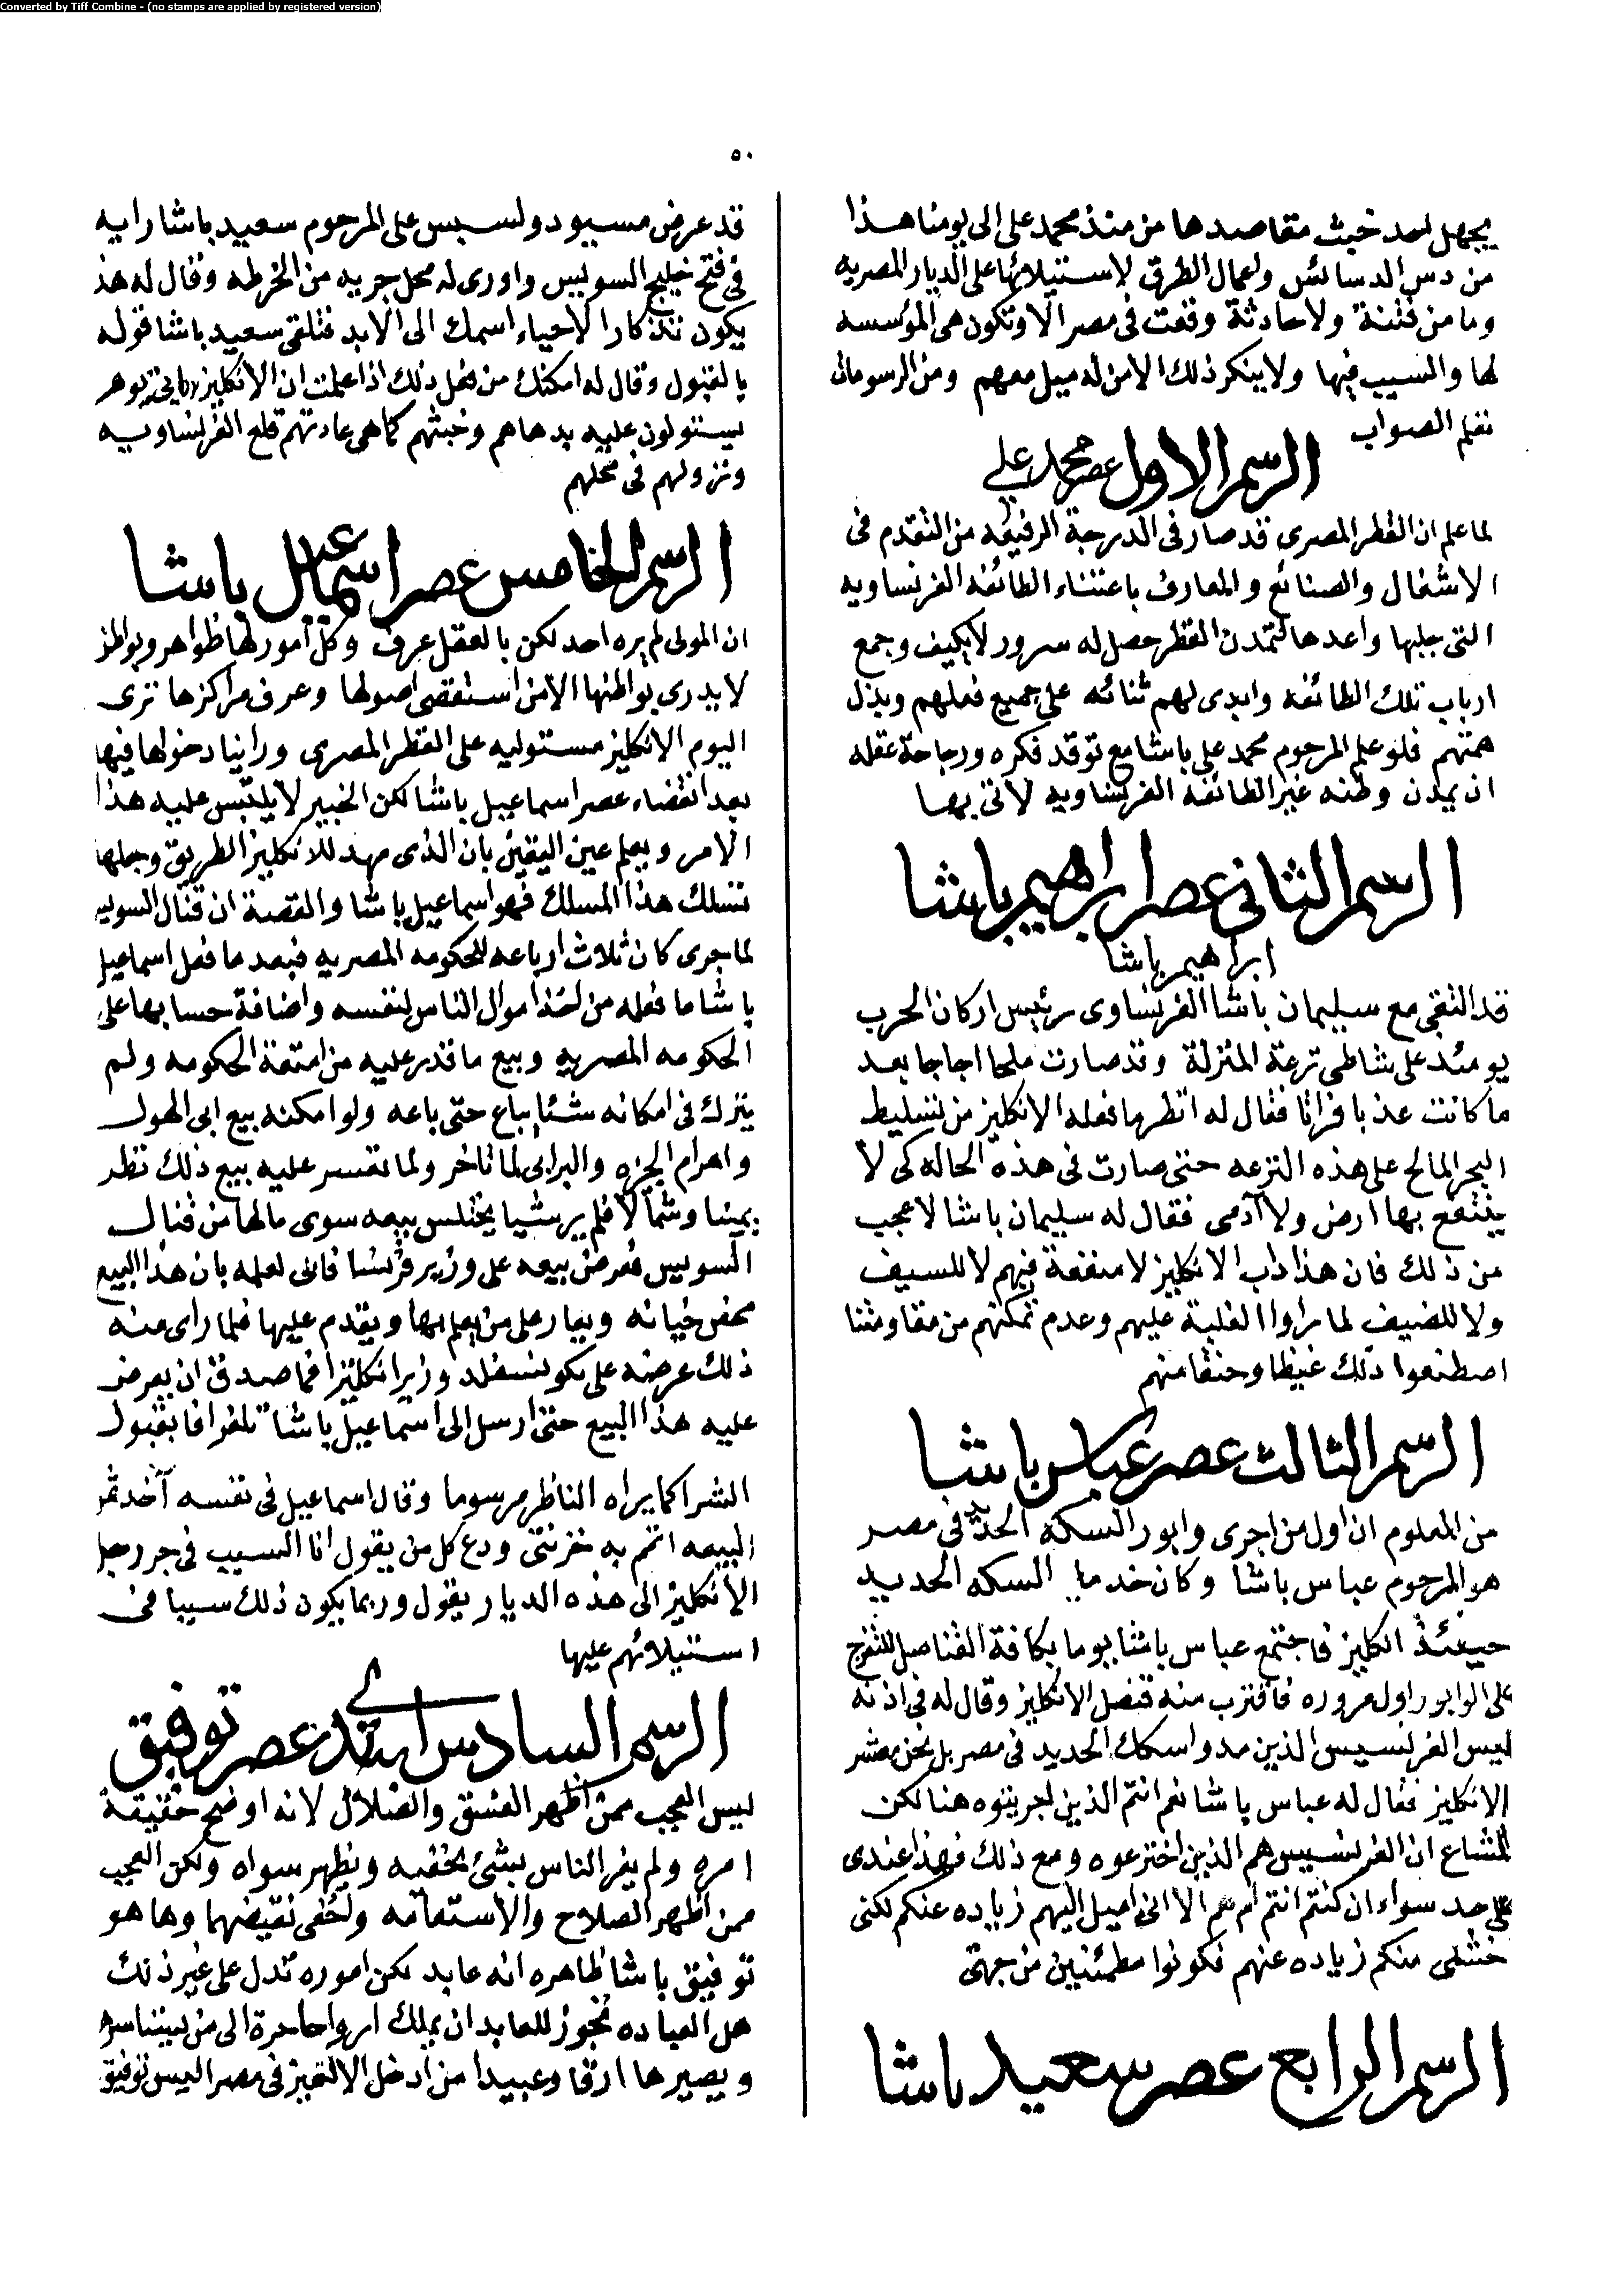 Converted by Tiff Combine - (no stamps are applied by registered version)
٥٠
يجهل احد خبث مقاصدها من منذ محمد على الى يومنا هذا
من دس الدسائس واعمال الطرق لاستيلائها على الديار المصريه
وما من فتنة ولا حادثة وقعت فى مصر الا وتكون هى المؤسسه
لها والمسبب فيها ولا ينكر ذلك الا من له ميل معهم ومن الرسومات
نعلم الصواب
الرسم الاول عصر محمد علي
لما علم ان القطر المصرى قد صار فى الدرجة الرفيعه من التقدم فى
الاشغال والصنائع والمعارف باعتناء الطائفه الفرنساويه
التى جلبها واعدها لتمدن القطر حصل له سرور لا يكيف وجمع
ارباب تلك الطائفه وابدى لهم ثنائه على جميع فعلهم وبذل
همتهم فلو علم المرحوم محمد على باشا مع توقد فكره ورجاحة عقله
ان يمدن وطنه غير الطائفه الفرنساويه لاتى بها
الرسم الثانى عصر ابراهيم باشا
ابراهيم باشا
قد التقى مع سليمان باشا الفرنساوى رئيس اركان الحرب
يومئذ على شاطى ترعة المنزلة وقد صارت ملحا اجاجا بعد
ما كانت عذبا فراتا فقال له انظر ما فعله الانكليز من تسليط
البحر المالح على هذه الترعه حتى صارت فى هذه الحاله كى لا
ينتفع بها ارض ولا آدمى فقال له سليمان باشا لا عجب
من ذلك فان هذا داب الانكليز لا منفعة فيهم لا للسيف
ولا للضيف لما راوا الغلبة عليهم وعدم تمكنهم من مقاومتنا
اصطنعوا ذلك غيظا وحنقا منهم
الرسم الثالث عصر عباس باشا
من المعلوم ان اول من اجرى وابور السكه الحديد فى مصر
هو المرحوم عباس باشا وكان خدما السكه الحديد
حينئذ انكليز فاجتمع عباس باشا يوما بكافة القناصل للتفرج
على الوابور اول مروره فاقترب منه قنصل الانكليز وقال له فى اذنه
ليس الفرنسيس الذين مدوا سكك الحديد فى مصر بل نحن معشر
الانكليز فقال له عباس باشا نعم انتم الذين اجريتوه هنا لكن
المشاع ان الفرنسيس هم الذين اخترعوه ومع ذلك فهذا عندى
على حد سواء ان كنتم انتم ام هم الا انى اميل اليهم زياده عنكم لكنى
خشى منكم زياده عنهم فكونوا مطمئنين من جهتى
الرسم الرابع عصر سعيد باشا
قد عرض مسيو دولسبس على المرحوم سعيد باشا رايه
فى فتح خليج السويس واورى له محل جريه من الخرطه وقال له هذ
يكون تذكارا لاحياء اسمك الى الابد فتلقى سعيد باشا قوله
بالقبول وقال له امكنك من فعل ذلك اذا علمت ان الانكليز
يستولون عليه بدهاهم وخبثهم كما هى عادتهم قلع الفرنساويه
ونزولهم فى محلهم
الرسم الخامس عصر اسماعيل باشا
ان المولى لم يره احد لكن بالعقل عرف وكل امور لها ظواهر وبواطن
لا يدرى بواطنها الا من استقصى اصولها وعرف مراكزها نرى
اليوم الانكليز مستوليه على القطر المصرى وراينا دخولها فيها
بعد انقضاء عصر اسماعيل باشا لكن الخبير لا يلتبس عليه هذا
الامر ويعلم عين اليقين بان الذى مهد للانكليز الطريق وجعلها
تسلك هذا المسلك فهو اسماعيل باشا والقصة ان قنال السويس
لما جرى كان ثلاث ارباعه للحكومه المصريه فبعد ما فعل اسماعيل
باشا ما فعله من اخذ اموال الناس لنفسه واضافة حسابها على
الحكومه المصريه وبيع ما قدر عليه من امتعة الحكومه ولم
يترك فى امكانه شئا يباع حتى باعه ولو امكنه بيع ابى الهول
واهرام الجزه والبرابى لما تاخر ولما تعسر عليه بيع ذلك نظر
يمينا وشمالا فلم ير شيا يختلس بيعه سوى مالها من قنال
السويس فعرض بيعه على وزير فرنسا فابى لعلمه بان هذا البيع
محض خيانه ويعار على من يعلم بها ويقدم عليها فلما راى منه
ذلك عرضه على بكونسفلد وزير انكليزا فما صدق ان يعرض
عليه هذا البيع حتى ارسل الى اسماعيل باشا تلغرافا بقبول
الشرا كما يراه الناظر مرسوما وقال اسماعيل فى نفسه آخذ ثمن
البيعه اتمم به خزنتى ودع كل من يقول انا السبب فى جر رجل
الانكليز الى هذه الديار يقول وربما يكون ذلك سببا فى
استيلائهم عليها
الرسم السادس ابتداى عصر توفيق
ليس العجب ممن اظهر الفسق والضلال لانه اوضح حقيقة
امره ولم يغر الناس بشئ يخفيه ويظهر سواه ولكن العجب
ممن اظهر الصلاح والاستقامه واخفى نقيضهما وها هو
توفيق باشا ظاهره انه عابد لكن اموره تدل على غير ذلك
هل العباده تجوز للعابد ان يملك ارواحا حرة الى من يبتناسره
ويصيرها ارقا وعبيدا من ادخل الانقيز فى مصر اليس توفيق